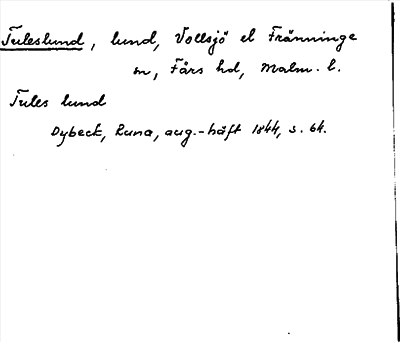 Tuleslund, lund, Vollsjö el Fränninge
sn, Färs hd, Malm. l.
Tules lund
Dybeck, Runa, aug.-häft 1844, s. 64.